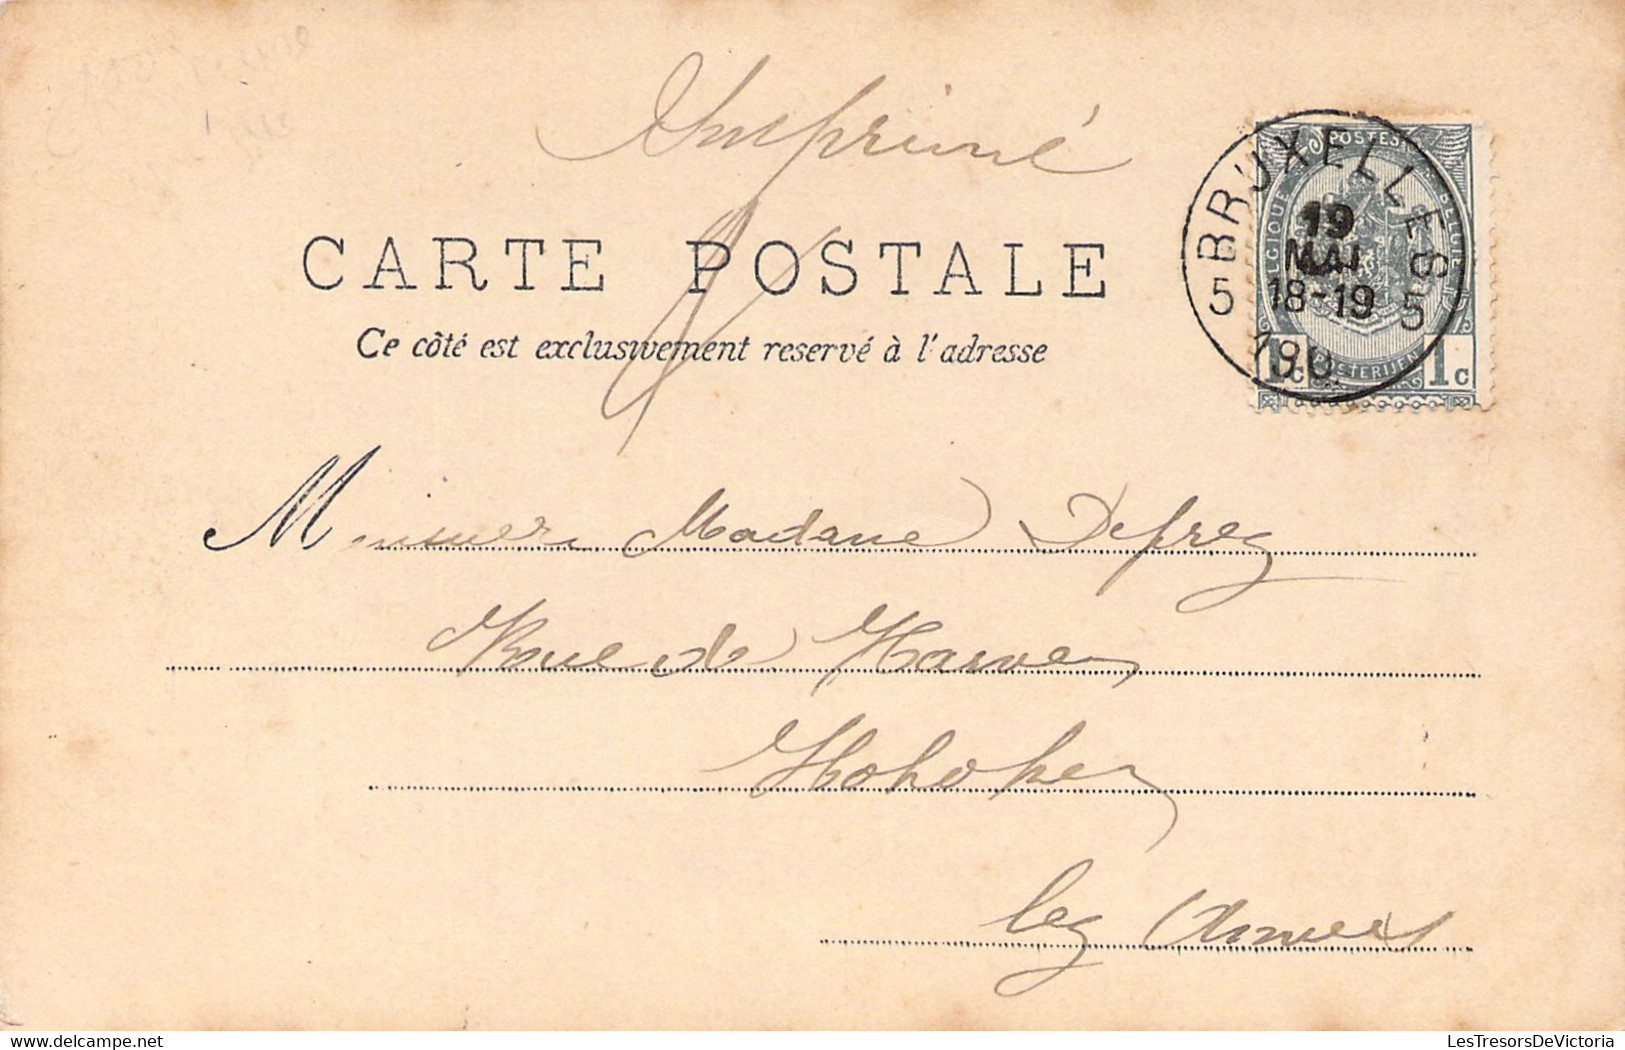 Imprimé
CARTE POSTALE
Ce côté est exclusivement reservé à l'adresse
BRUXELLES
5 5
19
MAI
18-19
190
POSTES
BELGIQUE BELGIE
POSTERIJEN
1c 1c
Monsieur Madame Defrez
Rue de
Hoboken
lez Anvers
LesTresorsDeVictoria